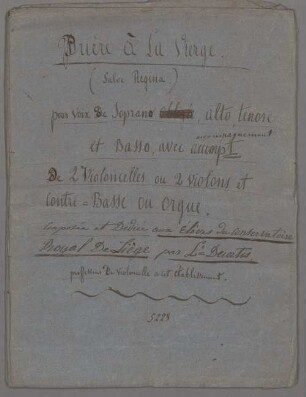 Prière à La Vierge.
(Salve Regina)
pour voix De Soprano, alto, tenore
accompagnement
et Basso, avec accompt
De 2 Violoncelles ou 2 violons et
Contre=Basse ou orgue.
Composée et Dédiée aux élèves du Conservatoire
Royal De Liège par L:
professeur De violoncelle à cet établissement.
5228